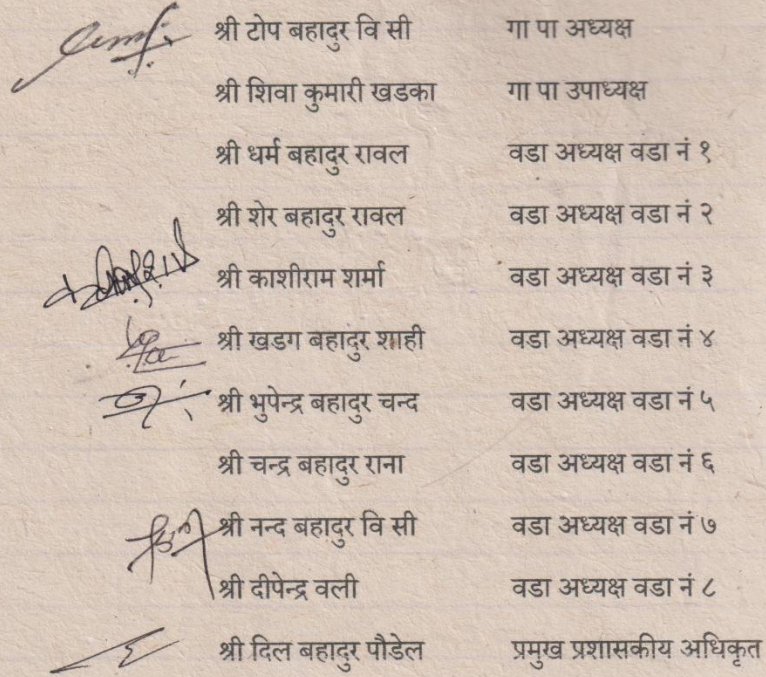 श्री टोप बहादुर वि सी गा पा अध्यक्ष
श्री शिवा कुमारी खडका गा पा उपाध्यक्ष
श्री धर्म बहादुर रावल वडा अध्यक्ष वडा नं १
श्री शेर बहादुर रावल वडा अध्यक्ष वडा नं २
श्री काशीराम शर्मा वडा अध्यक्ष वडा नं ३
श्री खडग बहादुर शाही वडा अध्यक्ष वडा नं ४
श्री भुपेन्द्र बहादुर चन्द वडा अध्यक्ष वडा नं ५
श्री चन्द्र बहादुर राना वडा अध्यक्ष वडा नं ६
श्री नन्द बहादुर वि सी वडा अध्यक्ष वडा नं ७
श्री दीपेन्द्र वली वडा अध्यक्ष वडा नं ८
श्री दिल बहादुर पौडेल प्रमुख प्रशासकीय अधिकृत